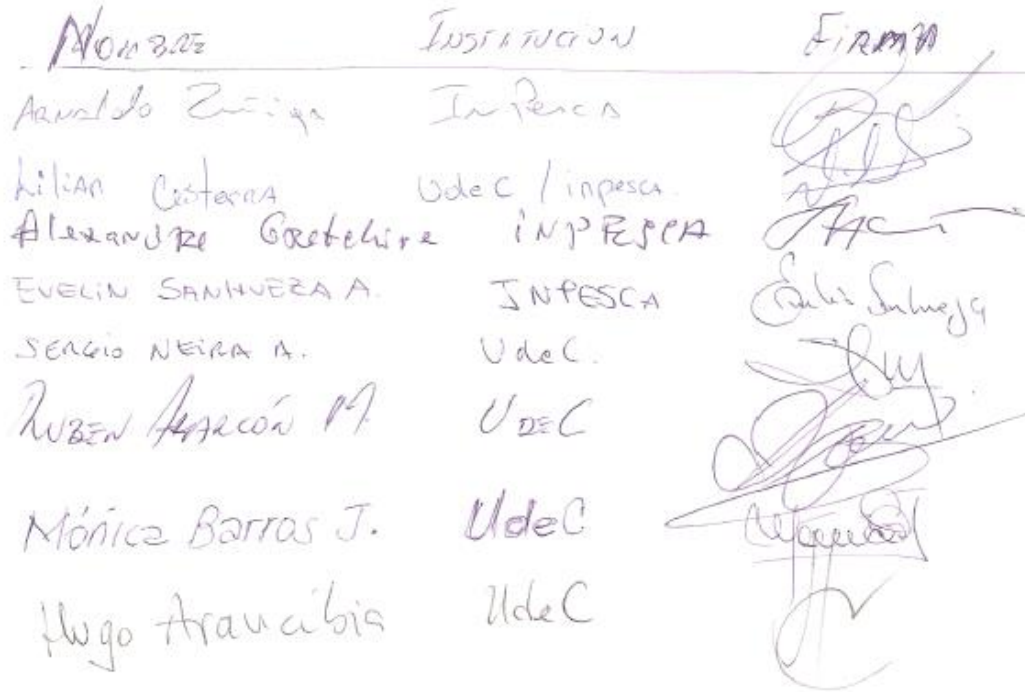 Nombre Institucion Firma
Arnaldo Zuñiga InPesca
Lilian Cisterna UdeC / inpesca
Alexandre inPESCA
EVELIN SANHUEZA A. INPESCA
SERGIO NEIRA A. UdeC.
RUBEN ALARCÓN M. UDEC
Mónica Barros J. UdeC
Hugo Arancibia UdeC